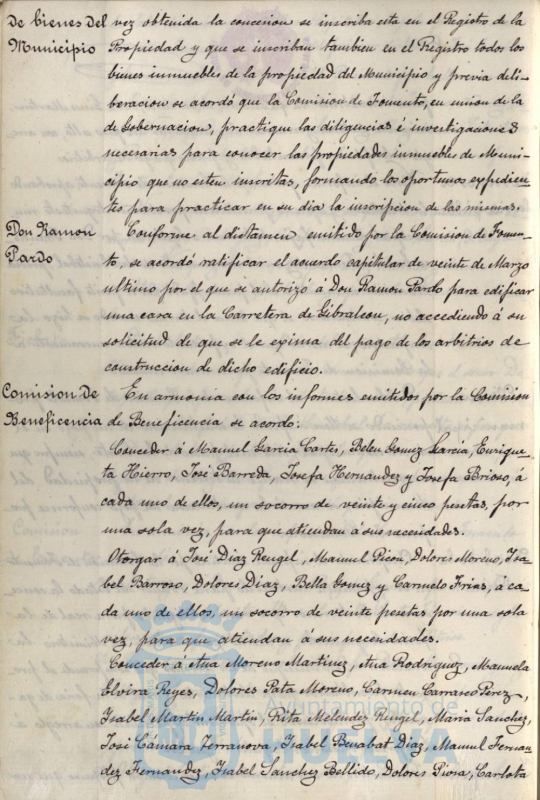 De bienes del
Municipio
vez obtenida la concesion se inscriba esta en el Registro de la
Propiedad y que se inscriban tambien en el Registro todos los
bienes inmuebles de la propiedad del Municipio y previa deli-
beracion se acordó que la Comision de Fomento, en union de la
de Gobernacion, practique las diligencias é investigaciones
necesarias para conocer las propiedades inmuebles de Muni-
cipio que no esten inscritas, formando los oportunos expedien-
tes para practicar en su dia la inscripcion de las mismas.
Don Ramon
Pardo
Conforme al dictamen emitido por la Comision de Fomen-
to, se acordó ratificar el acuerdo capitular de veinte de Marzo
ultimo por el que se autorizó á Don Ramon Pardo para edificar
una casa en la Carretera de Gibraleon, no accediendo á su
solicitud de que se le exima del pago de los arbitrios de
construccion de dicho edificio.
Comision de
Beneficencia
En armonia con los informes emitidos por la Comision
de Beneficencia se acordo:
Conceder á Manuel Garcia Cortes, Belen Gomez Garcia, Enrique-
ta Hierro, José Barreda, Josefa Hernandez y Josefa Brioso, á
cada uno de ellos, un socorro de veinte y cinco pesetas, por
una sola vez, para que atiendan á sus necesidades.
Otorgar á José Diaz Rengel, Manuel Picon, Dolores Moreno, Isa-
bel Barroso, Dolores Diaz, Bella Gomez y Carmelo Frias, á ca-
da uno de ellos, un socorro de veinte pesetas por una sola
vez, para que atiendan á sus necesidades.
Conceder á Ana Moreno Martinez, Ana Rodriguez, Manuela
Elvira Reyes, Dolores Pata Moreno, Carmen Carrasco Perez,
Isabel Martin Martin, Rita Melendez Rengel, Maria Sanchez,
José Cámara Terranova, Isabel Benabat Diaz, Manuel Fernan-
dez Fernandez, Isabel Sanchez Bellido, Dolores Piosa, Carlota
Ayuntamiento de
HUELVA